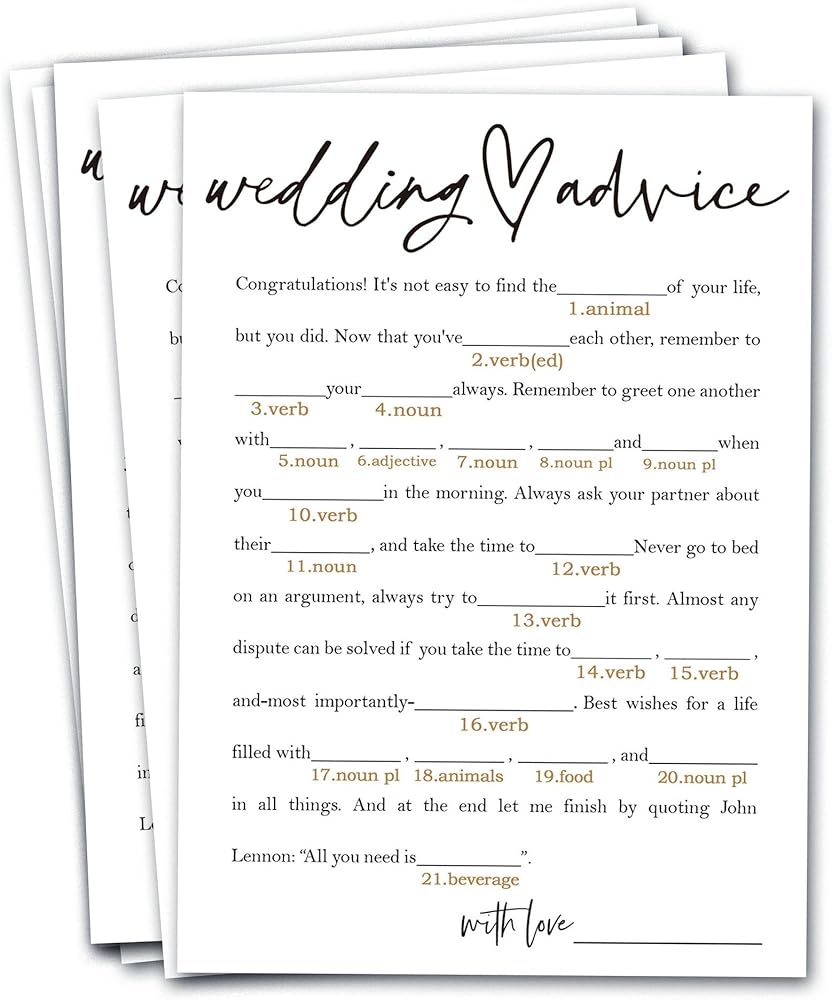 wedding advice
Congratulations! It's not easy to find the____________of your life,
1.animal
but you did. Now that you've____________each other, remember to
2.verb(ed)
__________your__________always. Remember to greet one another
3.verb 4.noun
with________, ________, ________, ________and________when
5.noun 6.adjective 7.noun 8.noun pl 9.noun pl
you____________in the morning. Always ask your partner about
10.verb
their__________, and take the time to__________Never go to bed
11.noun 12.verb
on an argument, always try to____________it first. Almost any
13.verb
dispute can be solved if you take the time to________, ________,
14.verb 15.verb
and-most importantly-________________. Best wishes for a life
16.verb
filled with________, ________, ________, and__________
17.noun pl 18.animals 19.food 20.noun pl
in all things. And at the end let me finish by quoting John
Lennon: “All you need is__________”.
21.beverage
with love__________________